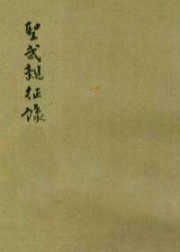 聖武親征錄